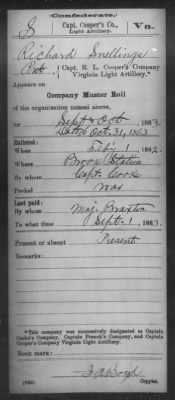 Confederate.
S Capt. Cooper's Co., Light Artillery. Va.
Richard Snellings
Pvt., Capt. R. L. Cooper's Company Virginia Light Artillery.*
Appears on
Company Muster Roll
of the organization named above,
for Sept & Oct, 1863.
Dated Oct. 31, 1863
Enlisted:
When Feb'y 1, 1862.
Where Brook Station
By whom Capt. Cooke
Period war
Last paid:
By whom Maj. Braxton
To what time Sept. 1, 1863.
Present or absent Present
Remarks:
*This company was successively designated as Captain
Cooke's Company, Captain French's Company, and Captain
Cooper's Company Virginia Light Artillery.
Book mark:
(642) Copyist.